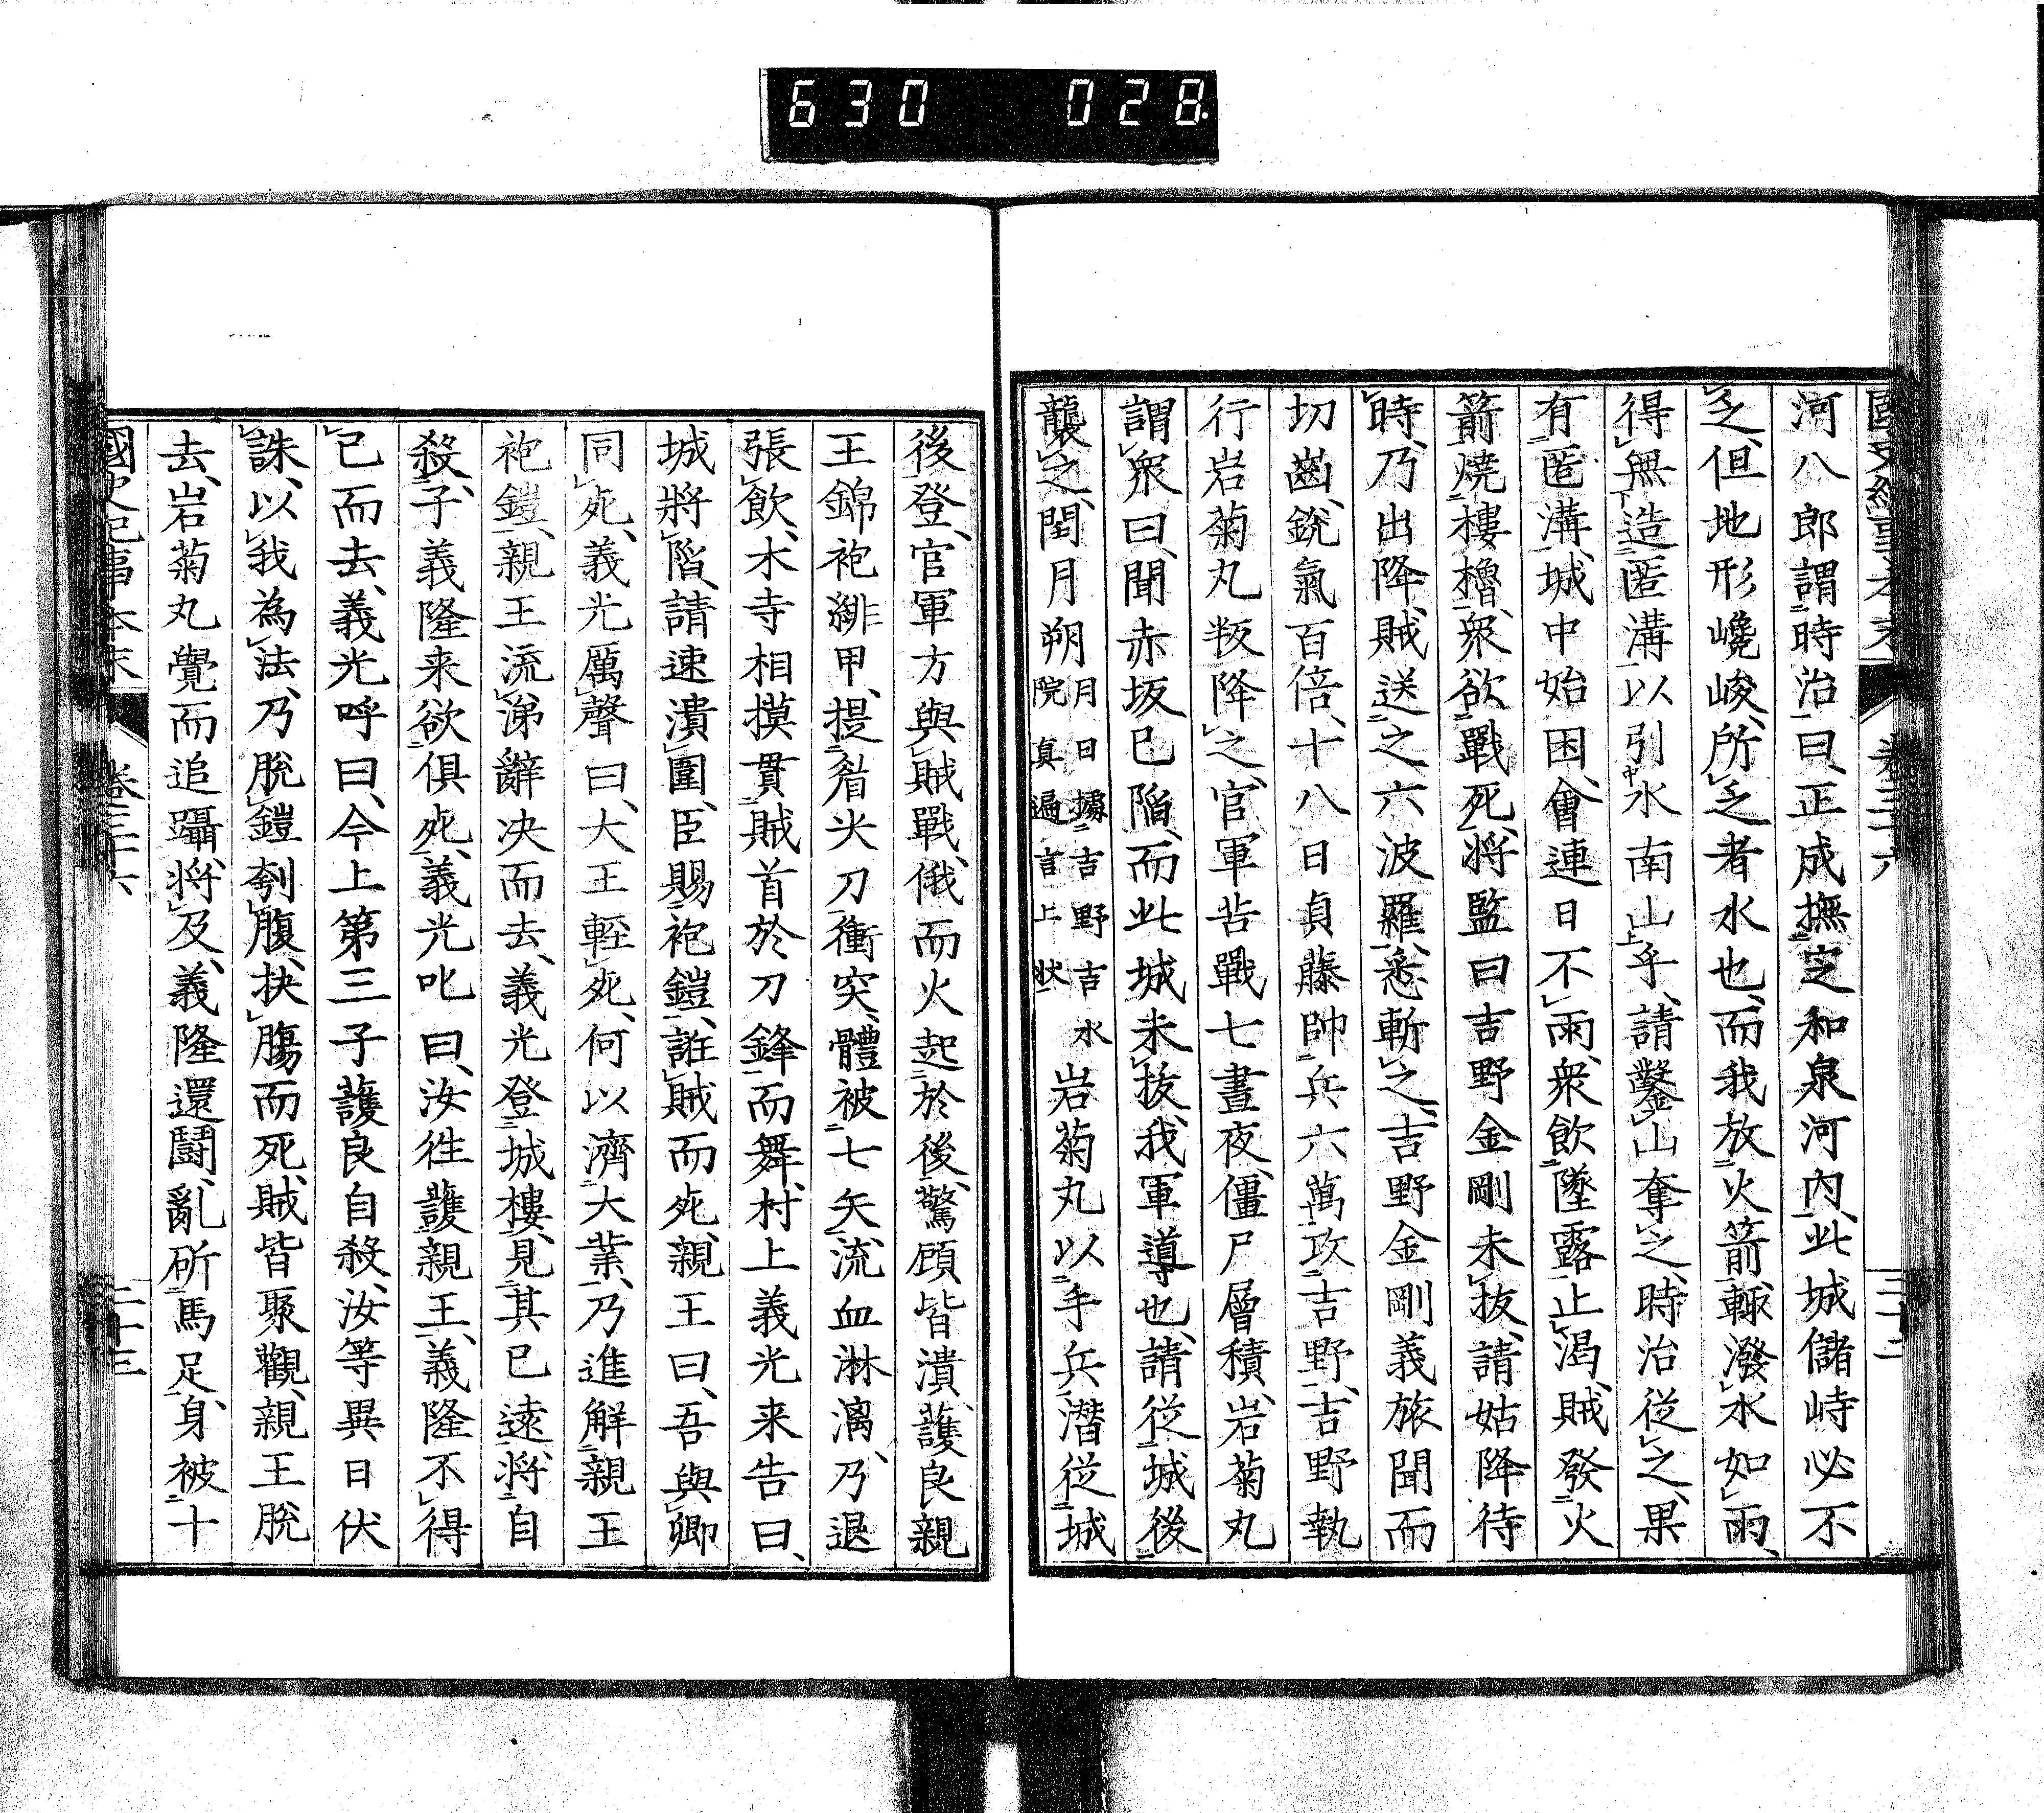 630 028
河八郎謂時治曰、正成撫定和泉河内、此城儲峙必不
乏、但地形巉峻、所乏者水也、而我放火箭、輙潑水如雨、
得無造匿溝以引水南山乎、請鑿山奪之、時治從之、果
有匿溝、城中始困、會連日不雨、衆飲墜露止渴、賊發火
箭燒樓櫓、衆欲戰死、将監曰吉野金剛未拔、請姑降待
時、乃出降、賊送之六波羅、悉斬之、吉野金剛義旅聞而
切齒、銳氣百倍、十八日貞藤帥兵六萬攻吉野、吉野執
行岩菊丸叛降之、官軍苦戰七晝夜、僵尸層積、岩菊丸
謂衆曰、聞赤坂已陷、而此城未拔、我軍導也、請從城後
襲之、閏月朔月日據吉野吉水院真遍言上状岩菊丸以手兵潜從城
國史紀事本末 卷三十六 二十三
後登、官軍方與賊戰、俄而火起於後、驚顧皆潰、護良親
王錦袍緋甲、提眉尖刀衝突、體被七矢、流血淋漓、乃退
張飲、木寺相摸貫賊首於刀鋒而舞、村上義光来告曰、
城將陷、請速潰圍、臣賜袍鎧、誑賊而死、親王曰、吾與卿
同死、義光厲聲曰、大王輕死、何以濟大業、乃進解親王
袍鎧、親王流涕辭决而去、義光登城樓、見其已遠、將自
殺、子義隆来欲俱死、義光叱曰、汝往護親王、義隆不得
已而去、義光呼曰、今上第三子護良自殺、汝等異日伏
誅、以我為法、乃脫鎧刳腹、抉膓而死、賊皆聚觀、親王脫
去、岩菊丸覺而追躡、將及、義隆還鬪、亂斫馬足、身被十
國史紀事本末 卷三十六 二十三